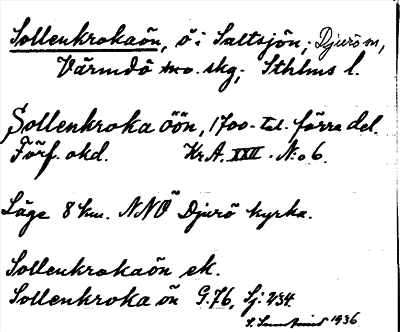 Sollenkrokaön, ö i Saltsjön; Djurö sn,
Värmdö skg; Sthlms l.
Sollenkroka öön, 1700-tal. förra del.
Förf. okd. Kr.A. XXII. No 6.
Läge 8 km. NNÖ Djurö kyrka.
Sollenkrokaön ek.
Sollenkroka ön G.76, Sj: 234
S. 1936